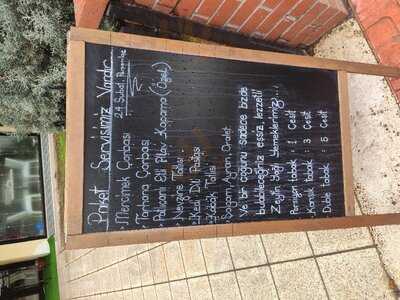 Paket Servisimiz Vardır
24 Şubat, Perşembe
• Mercimek Çorbası
• Tarhana Çorbası
• Patlıcanlı Etli Pilav Kapama (Özel)
• Nevzine Tatlısı
• Kedi Dili Pastası
• Kabak Tatlısı
Soğan, Ayran, Oralet
Ve bir çoğunu sadece bizde
bulabileceğiniz eşsiz lezzetli
Zeytin Yağlı Yemeklerimiz...
Porsiyon tabak : 1 Çeşit
Karışık tabak : 3 Çeşit
Duble tabak : 5 Çeşit